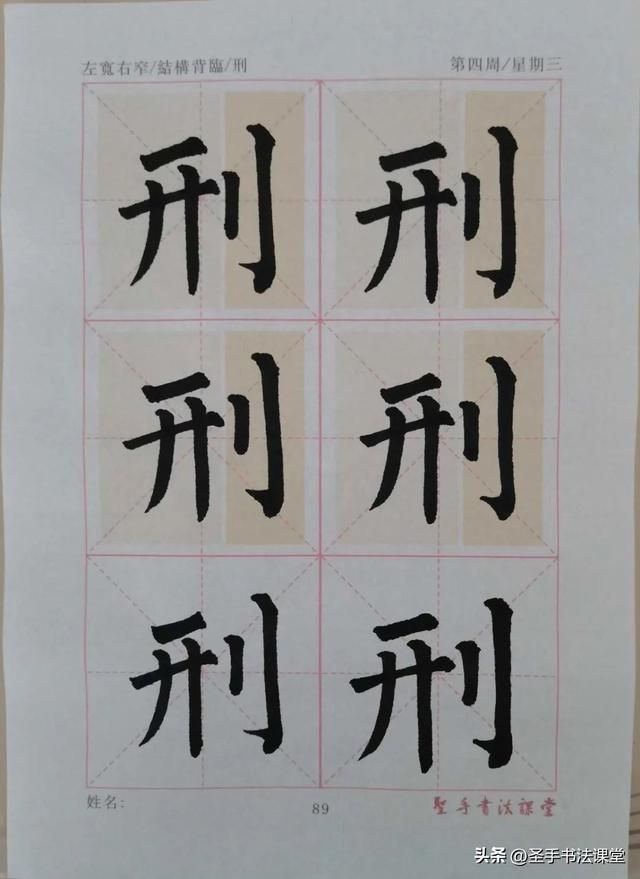 左寬右窄/結構背臨/刑 第四周/星期三
刑 刑
刑 刑
刑 刑
姓名: 89 聖手書法課堂
头条 @圣手书法课堂